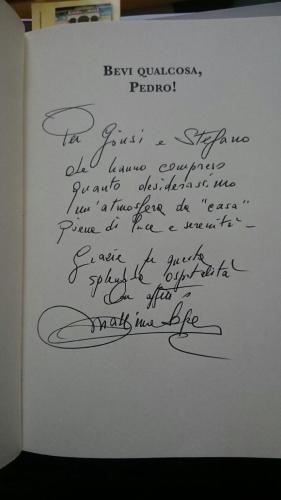 BEVI QUALCOSA,
PEDRO!
Per Giusi e Stefano
che hanno compreso
quanto desiderassimo
un'atmosfera da "casa"
piena di luce e serenità -
Grazie per questa
splendida ospitalità
con affetto
Massimo Lopez